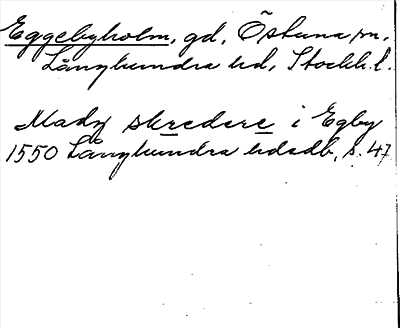 Eggebyholm, gd, Östuna sn,
Långhundra hd, Stockh. l.
Madz skredere i Egby
1550 Långhundra hdsdb, s. 47